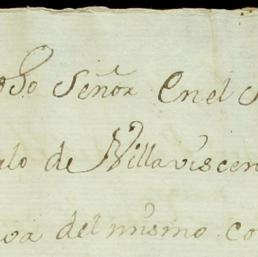 Señor En el
de Villavicen
del mismo co